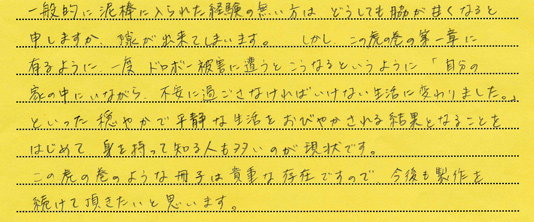 一般的に泥棒に入られた経験の無い方は どうしても脇が甘くなると
申しますか、隙が出来てしまいます。 しかし この虎の巻の第一章に
有るように 一度 ドロボー被害に遭うとこうなるというように 「自分の
家の中にいながら、不安に過ごさなければいけない生活に変わりました。」
といった 穏やかで平静な生活を おびやかされる結果となることを
はじめて 身を持って知る人も多いのが現状です。
この虎の巻のような冊子は貴重な存在ですので 今後も製作を
続けて頂きたいと思います。